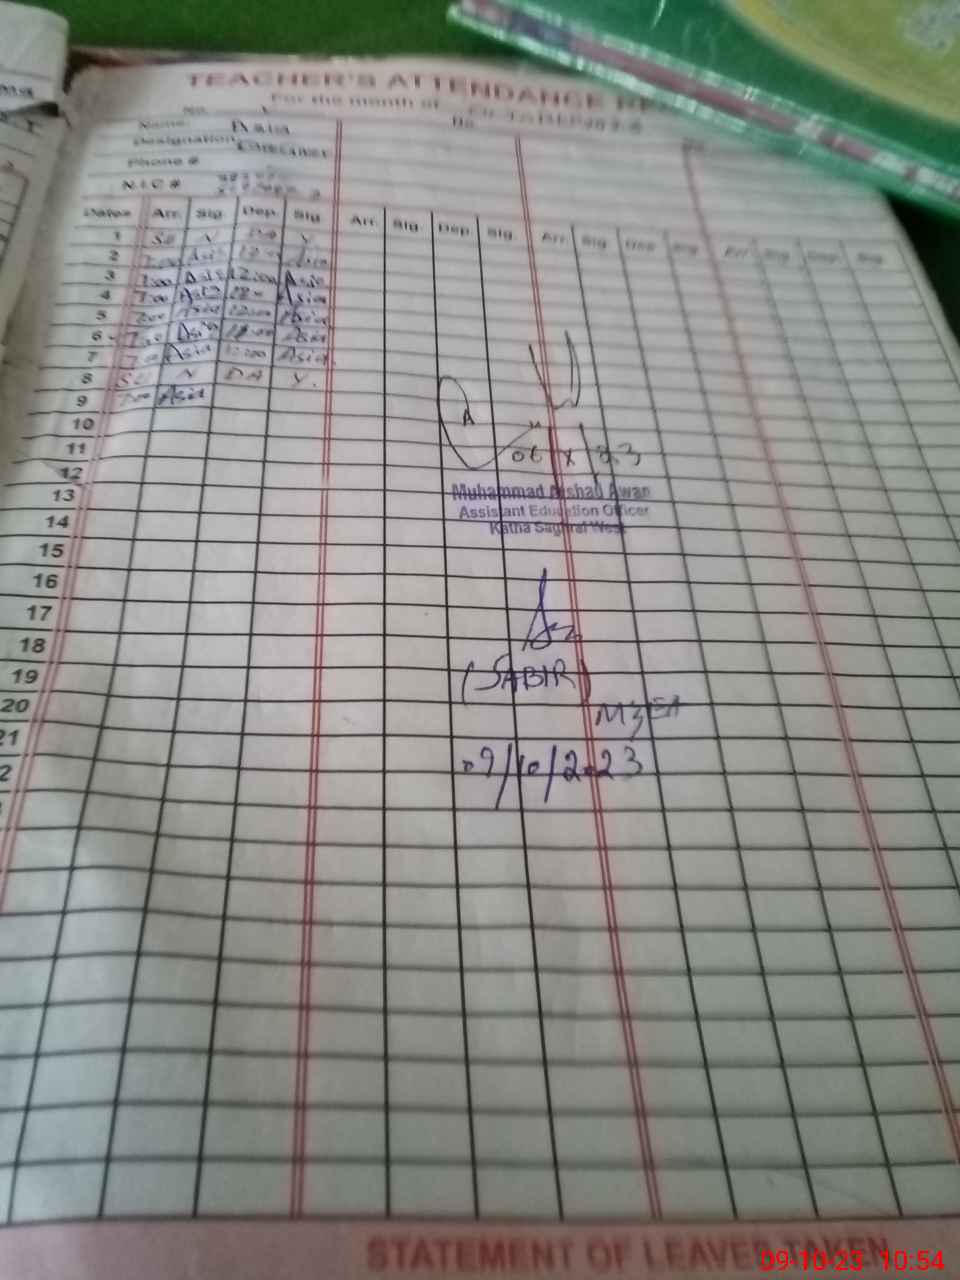 TEACHER'S ATTENDANCE RE
For the month of
No.
Name: Asia
Designation Caregiver
Phone #
N.I.C #
Dates Arr. Sig. Dep. Sig Arr. Sig. Dep. Sig. Arr. Sig. Dep Sig Arr Sig Dep Sig
1 SU N DA Y
2 7:00 Asia 12:00 Asia
3 7:00 Asia 12:00 Asia
4 7:00 Asia 12:00 Asia
5 7:00 Asia 12:00 Asia
6 7:00 Asia 12:00 Asia
7 7:00 Asia 12:00 Asia
8 SU N DA Y.
9 7:00 Asia
10
11
12
13
14
15
16
17
18
19
20
21
2
06/X/23
Muhammad Arshad Awan
Assistant Education Officer
Katha Saghral West
(SABIR)
MEA
09/10/2023
STATEMENT OF LEAVES TAKEN
09-10-23 10:54